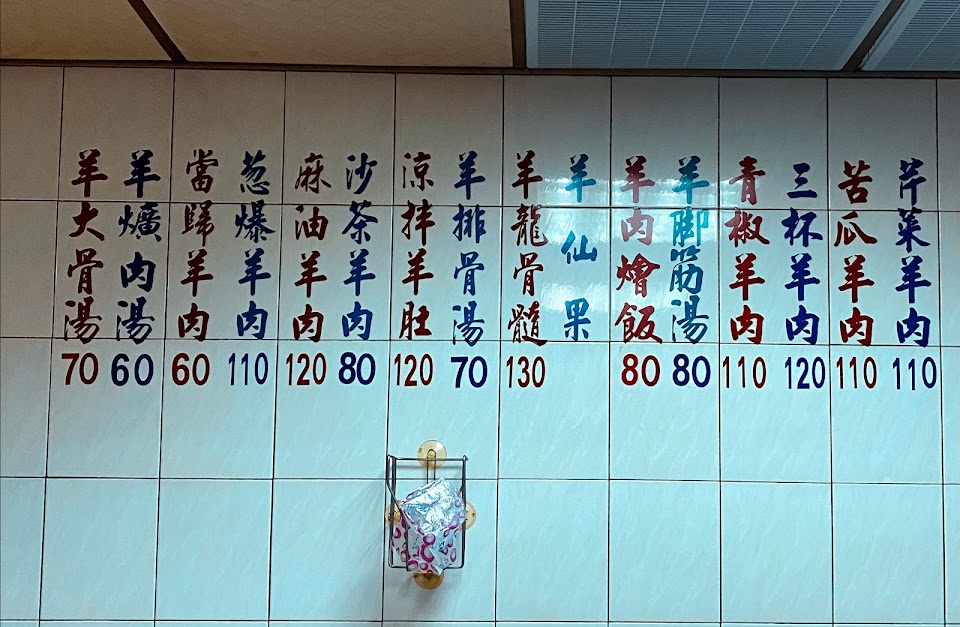 芹菜羊肉 110
苦瓜羊肉 110
三杯羊肉 120
青椒羊肉 110
羊脚筋湯 80
羊肉燴飯 80
羊仙果
羊龍骨髓 130
羊排骨湯 70
涼拌羊肚 120
沙茶羊肉 80
麻油羊肉 120
葱爆羊肉 110
當歸羊肉 60
羊爌肉湯 60
羊大骨湯 70